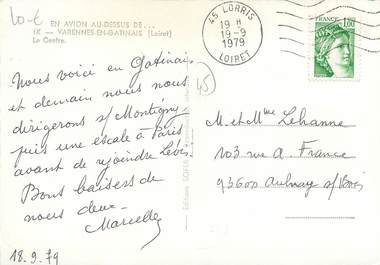 10-€
EN AVION AU-DESSUS DE...
IX — VARENNES-EN-GATINAIS (Loiret)
Le Centre.
45 LORRIS
19 H
19-9
1979
LOIRET
FRANCE
1,00
45
Nous voici en Gatinais
et demain nous nous
dirigerons s/ Montigny
puis une escale à Paris
avant de rejoindre Lévis.
Bons baisers de
nous deux.
Marcelle
18.9.79
Editions
M et Mme Lehanne
103 rue A. France
93600 Aulnay s/Bois